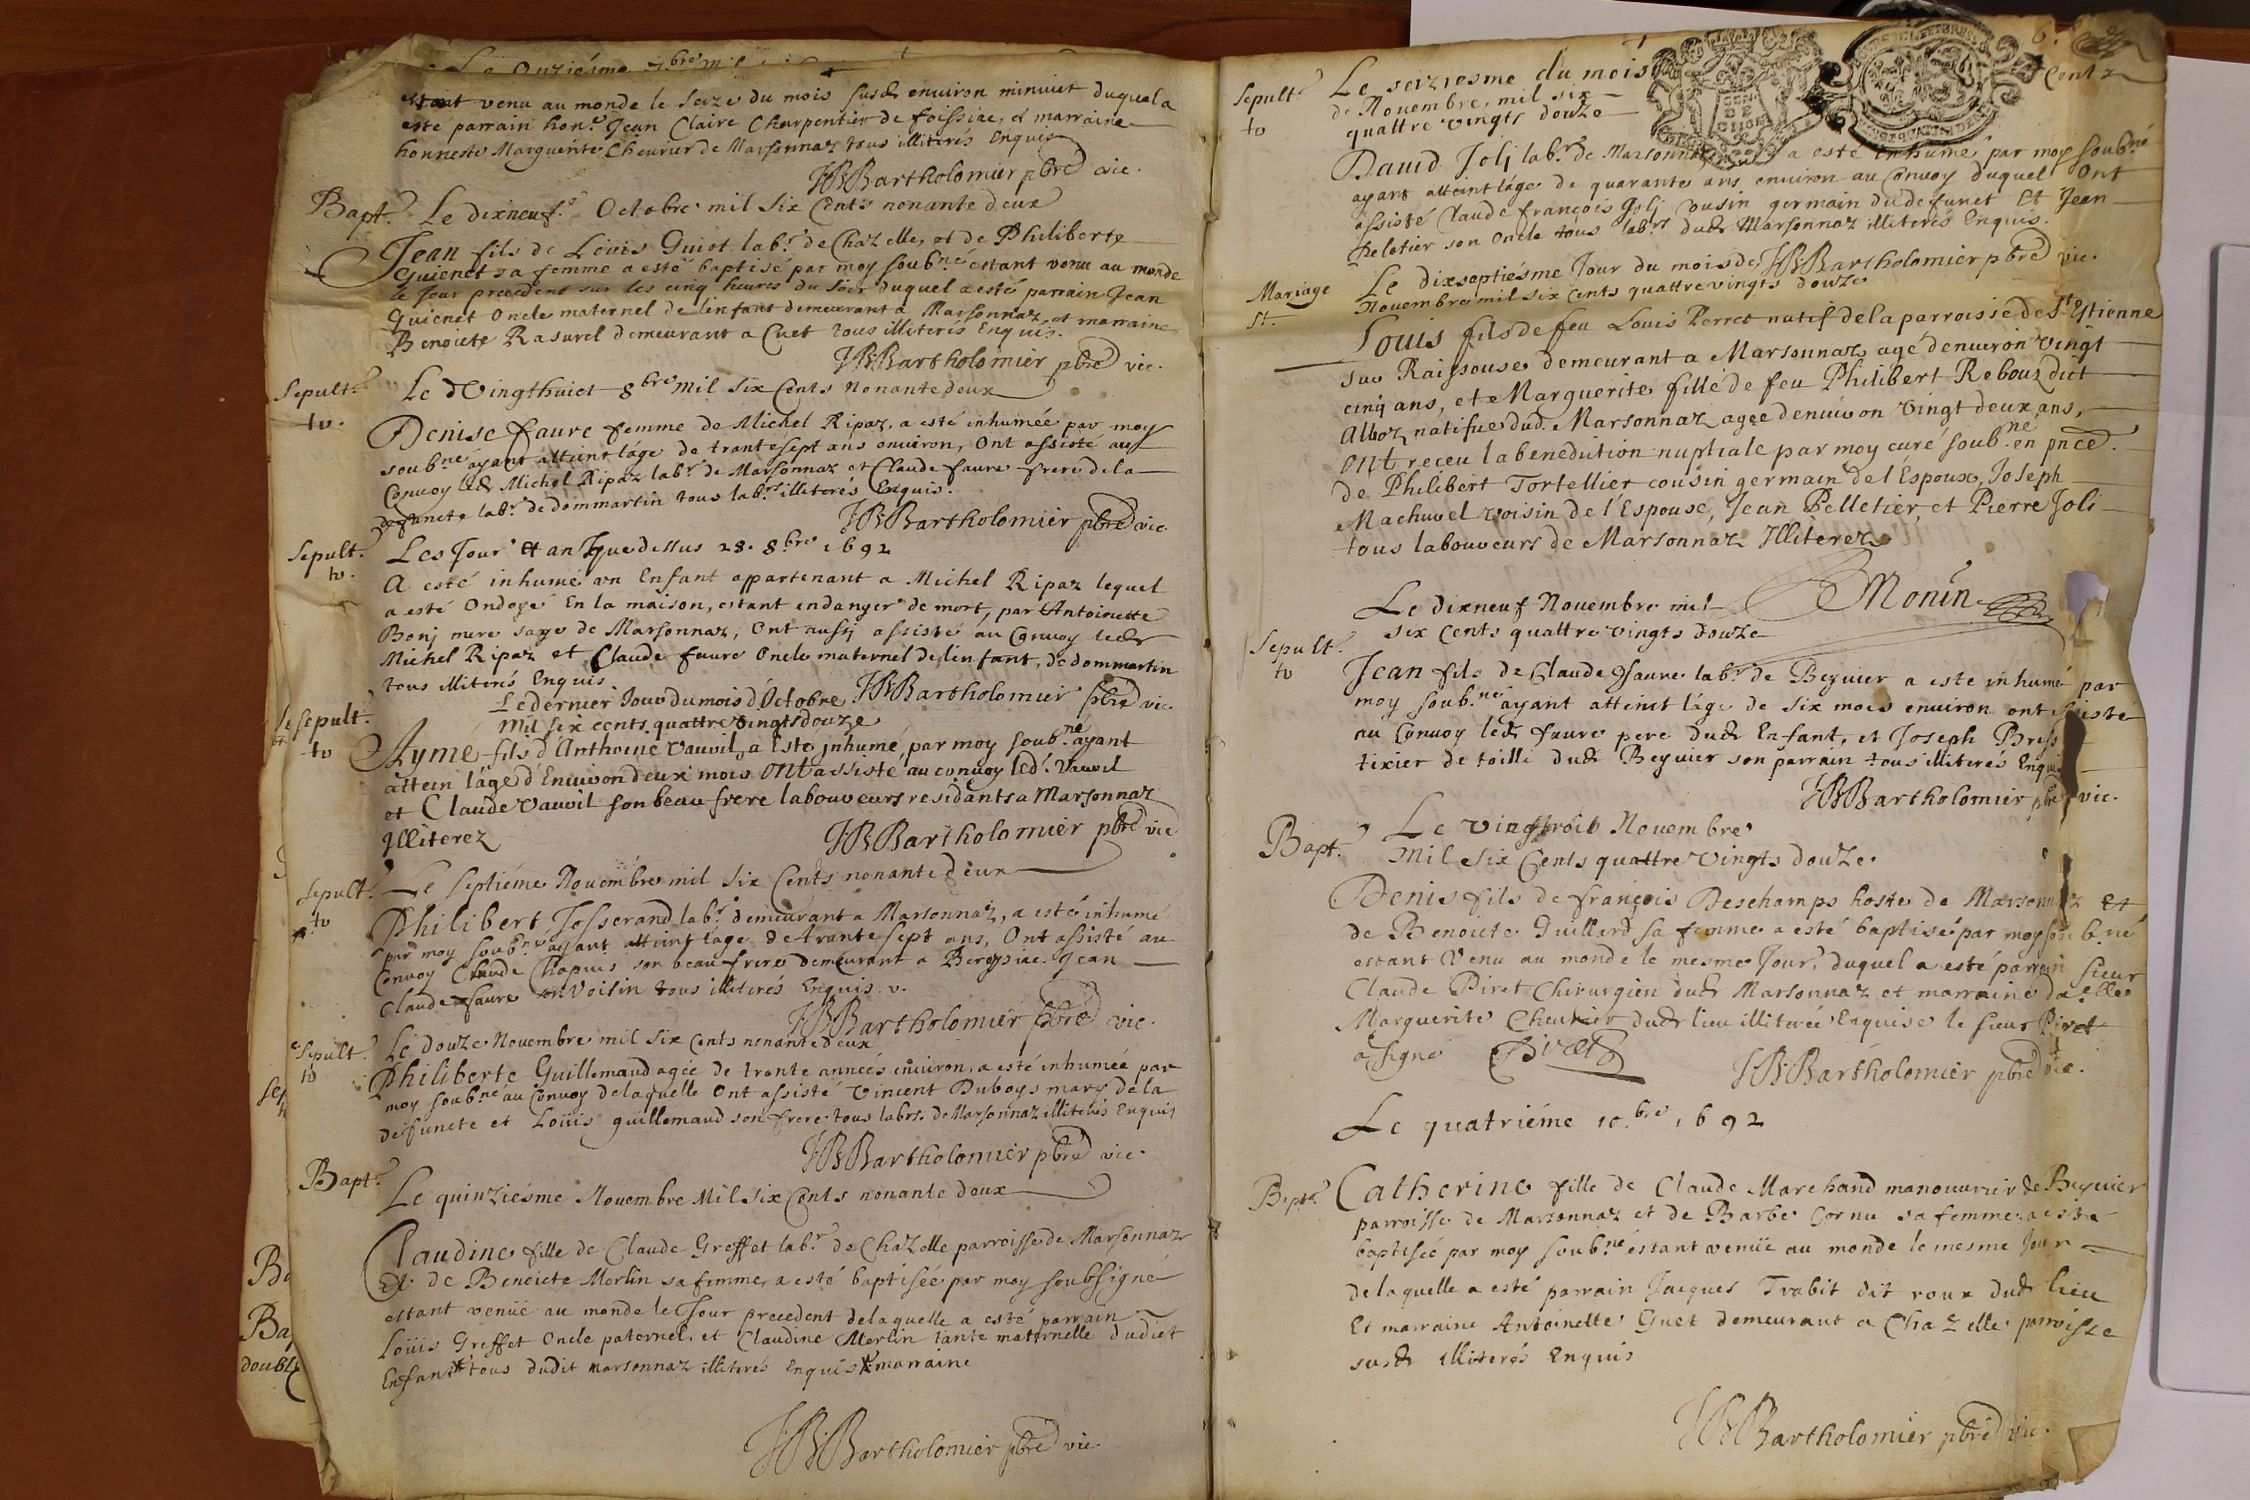 Le Onziésme 7bre mil
estant venu au monde le seize du mois susd. environ minuict duquel a
esté parrain hon.e Jean Claire Charpentier de foissiac, et marraine
honneste Marguerite Cheurier de Marsonnaz tous illiterés Enquis
JB Bartholomier pbre vic.
Bapt.e Le dixneuf.e Octobre mil six Cents nonante deux
Jean fils de Louis Guiot lab.r de Chazelle, et de Philiberte
Guienet sa femme a esté baptisé par moy soub.né estant venu au monde
le Jour precedent sur les cinq heures du soir duquel a esté parrain Jean
Guienet Oncle maternel de l'enfant demeurant a Marsonnaz et marraine
Benoiete Rasurel demeurant a Cuet tous illiterés Enquis.
JB Bartholomier pbre vic.
Sepult.e Le Vingthuict 8bre mil six Cents Nonante deux
to.
Denise faure femme de Michel Ripaz, a esté inhumée par moy
soub.né ayant atteint láge de trante sept ans environ, Ont assisté au
Convoy led. Michel Ripaz lab.r de Marsonnaz et Claude faure frere de la
defuncte lab.r de dommartin tous lab.rs illiterés Enquis.
JB Bartholomier pbre vic.
Sepult.e Les Jour et an que dessus 28. 8bre 1692
to.
A esté inhumé vn Enfant appartenant a Michel Ripaz lequel
a esté Ondoyé En la maison, estant en danger de mort, par Antoinette
Bonj mere sage de Marsonnaz, Ont aussj assisté au Convoy led.
Michel Ripaz et Claude faure Oncle maternel de l'enfant, de dommartin
tous illiterés Enquis
JB Bartholomier pbre vic.
Le dernier Jour du mois d'Octobre
Sepult.e mil six cents quattre vingts douze
to
Aymé fils d'Anthoine Vauvil, a esté jnhumé, par moy soub.né ayant
attein l'age d'Enuiron deux mois ont assisté au convoy led. Vauvil
et Claude Vauvil son beau frere laboureurs residants a Marsonnaz
Jlliterez
JB Bartholomier pbre vic
Sepult.e Le septiéme Nouëmbre mil six Cents nonante deux
to
Philibert Josserand lab.r demeurant a Marsonnaz, a esté inhumé
par moy soub.né ayant atteint láge de trante sept ans, Ont assisté au
Convoy Claude Chapuis son beau frere demeurant a Bereysiac. Jean
Claude faure son Voisin tous illiterés Enquis.
JB Bartholomier pbre vic.
Sepult.e Le douze Nouembre mil six Cents nonante deux
to
Philiberte Guillemaud agée de trante années enuiron, a esté inhumée par
moy soub.né au Convoy de laquelle Ont assisté Vincent Duboys mary de la
defuncte et Loüis guillemaud son frere tous labrs. de Marsonnaz illiterés Enquis
JB Bartholomier pbre vic.
Bapt.e
Le quinziésme Nouembre Mil six Cents nonante deux
Claudine fille de Claude Greffet lab.r de Chazelle parroisse de Marsonnaz
Et de Benoiete Merlin sa femme, a esté baptisée par moy soubsigné
estant venuë au monde le Jour precedent de laquelle a esté parrain
Loüis Greffet Oncle paternel, et Claudine Merlin tante maternelle dudiet
Enfant tous dudit Marsonnaz illiterés Enquis marraine
JB Bartholomier pbre vic.
Sepult.e Le seziesme du mois
to de Nouembre, mil six Cents
quattre vingts douze
Dauid Jolj lab.r de Marsonnaz a esté inhumé, par moy soub.né
ayant atteint láge de quarante ans enuiron au Convoy duquel Ont
assisté Claude françois Jolj cousin germain du defunct Et Jean
Peletier son Oncle tous lab.rs dud. Marsonnaz illiterés Enquis.
JB Bartholomier pbre vic.
Mariage Le dixseptiésme Jour du mois de
st. Nouembre mil six cents quattre vingts douze
Louis fils de feu Louis Perret natif de la parroisse de St Estienne
sur Raissouse demeurant a Marsonnaz agé d'enuiron vingt
cinq ans, et Marguerite fille de feu Philibert Rebouz dict
Alboz natifue dud. Marsonnaz agée d'enuiron vingt deux ans,
ont receu la benediction nuptiale par moy curé soub.né en pnce.
de Philibert Tortellier cousin germain de l'Espoux, Joseph
Machurel voisin de l'Espouse, Jean Pelletier, et Pierre Joli
tous laboureurs de Marsonnaz Jlliterez
Monin
Le dixneuf Nouembre mil
six Cents quattre vingts douze
Sepult.e
to
Jean fils de Claude faure lab.r de Beyuier a esté inhumé par
moy soub.né ayant atteint láge de six mois enuiron ont assisté
au Convoy led. faure pere dud. Enfant, et Joseph
tixier de toille dud. Beyuier son parrain tous illiterés Enquis
JB Bartholomier pbre vic.
Bapt.e Le vingttrois Nouembre
mil six Cents quattre vingts douze
Denis fils de françois Deschamps hoste de Marsonnaz Et
de Benoiete Guillard sa femme a esté baptisé par moy soub.né
estant Venu au monde le mesme Jour, duquel a esté parrain sieur
Claude Piret Chirurgien dud. Marsonnaz et marraine da.elle
Marguerite Cheurier dud. lieu illiterée Enquise le sieur Piret
a signé Piret
JB Bartholomier pbre vic.
Le quatriéme 10.bre 1692
Bapt.e Catherine fille de Claude Marchand manouurier de Beyuier
parroisse de Marsonnaz et de Barbe Cornu sa femme, a esté
baptisée par moy soub.né estant venuë au monde le mesme Jour
de laquelle a esté parrain Jacques Trabit dit roux dud. lieu
Et marraine Antoinette Guet demeurant a Chazelle parroisse
susd. illiterés Enquis
JB Bartholomier pbre vic.